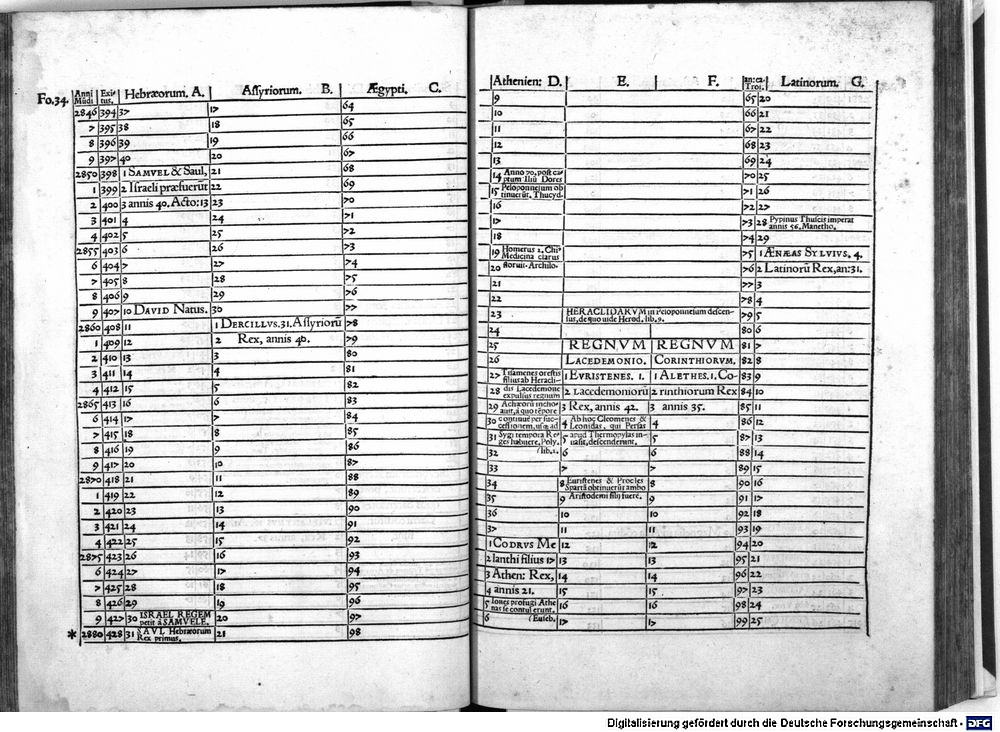 Fo.34. Anni Mūdi Exitus. Hebræorum. A. Aſſyriorum. B. Ægypti. C.
2846 394 37 17 64
7 395 38 18 65
8 396 39 19 66
9 397 40 20 67
2850 398 1 SAMVEL & Saul, 21 68
1 399 2 Iſraeli præfuerūt 22 69
2 400 3 annis 40. Acto: 13 23 70
3 401 4 24 71
4 402 5 25 72
2855 403 6 26 73
6 404 7 27 74
7 405 8 28 75
8 406 9 29 76
9 407 10 DAVID Natus. 30 77
2860 408 11 1 DERCILLVS. 31. Aſſyriorū 78
1 409 12 2 Rex, annis 40. 79
2 410 13 3 80
3 411 14 4 81
4 412 15 5 82
2865 413 16 6 83
6 414 17 7 84
7 415 18 8 85
8 416 19 9 86
9 417 20 10 87
2870 418 21 11 88
1 419 22 12 89
2 420 23 13 90
3 421 24 14 91
4 422 25 15 92
2875 423 26 16 93
6 424 27 17 94
7 425 28 18 95
8 426 29 19 96
9 427 30 ISRAEL REGEM petit à SAMVELE. 20 97
* 2880 428 31 SAVL Hebræorum Rex primus. 21 98
Athenien: D. E. F. an: ca. Troi. Latinorum. G.
9 65 20
10 66 21
11 67 22
12 68 23
13 69 24
14 Anno 70, poſt captum Iliū Dores 70 25
15 Peloponneſum obtinuerūt. Thucyd. 71 26
16 72 27
17 73 28 Pypinus Thuſcis imperat annis 56, Manetho.
18 74 29
19 Homerus 2. Chi⁹ Medicina clarus 75 1 ÆNÆAS SYLVIVS. 4.
20 floruit. Archilo. 76 2 Latinorū Rex, an: 31.
21 77 3
22 78 4
23 HERACLIDARVM in Peloponneſum deſcenſus, de quo uide Herod. lib. 9. 79 5
24 80 6
25 REGNVM REGNVM 81 7
26 LACEDEMONIO. CORINTHIORVM. 82 8
27 Tiſamenes oreſtis filius ab Heracli- 1 EVRISTENES. 1. 1 ALETHES. 1. Co- 83 9
28 dis Lacedemone expulſus regnum 2 Lacedemoniorū 2 rinthiorum Rex 84 10
29 Achæorū inchoauit, à quo tēpore 3 Rex, annis 42. 3 annis 35. 85 11
30 continuè per ſucceſſionem, uſq; ad 4 Ab hoc Cleomenes & Leonidas, qui Perſas 4 86 12
31 Sygi tempora Reges habuere. Poly. 5 apud Thermopylas inuaſit, deſcenderunt. 5 87 13
32 (lib. 2. 6 6 88 14
33 7 7 89 15
34 8 Euriſtenes & Procles Spartā obtinuerūt ambo 8 90 16
35 9 Ariſtodemi filij fuere. 9 91 17
36 10 10 92 18
37 11 11 93 19
1 CODRVS Me 12 12 94 20
2 lanthi filius 17 13 13 95 21
3 Athen: Rex, 14 14 96 22
4 annis 21. 15 15 97 23
5 Iones profugi Athenas ſe contulerunt. 16 16 98 24
6 (Euſeb. 17 17 99 25
Digitalisierung gefördert durch die Deutsche Forschungsgemeinschaft - DFG